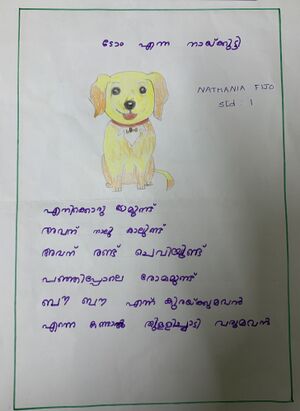 ടോം എന്ന നായ്ക്കുട്ടി
NATHANIA FIJO
Std : 1
എനിക്കൊരു ടോമുണ്ട്
അവന് നാലു കാലുണ്ട്
അവന് രണ്ട് ചെവിയുണ്ട്
പഞ്ഞിപോലെ രോമമുണ്ട്
ബൗ ബൗ എന്ന് കുരയ്ക്കുമവൻ
എന്നെ കണ്ടാൽ തുള്ളിച്ചാടി വരുമവൻ